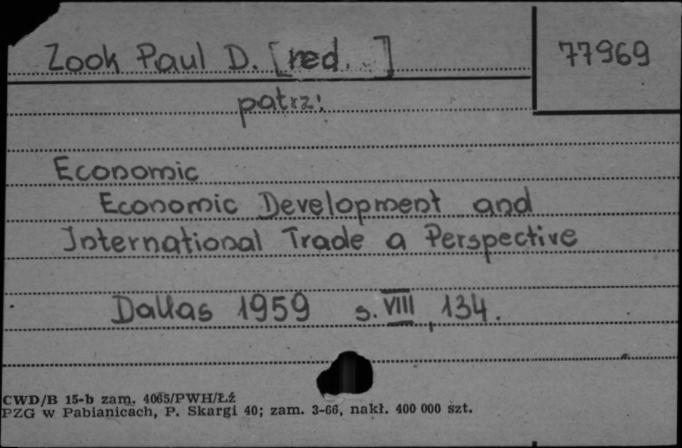 Zook Paul D. [red. ]
77969
patrz:
Economic
Economic Development and
International Trade a Perspective
Dallas 1959 s. VIII, 134.
CWD/B 15-b zam. 4065/PWH/Łź
PZG w Pabianicach, P. Skargi 40; zam. 3-66, nakł. 400 000 szt.